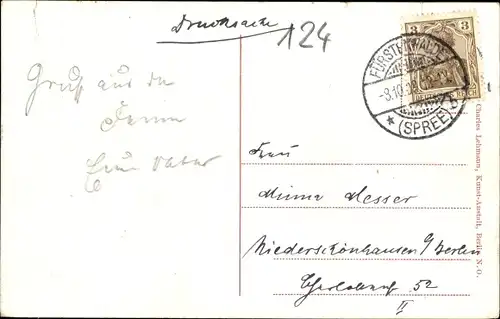 Drucksache
124
3
FÜRSTENWALDE
-8.10.
* (SPREE)
REICH
Gruß aus der
Frau
Minna Messer
Niederschönhausen b/Berlin
52
II
Charles Lehmann, Kunst-Anstalt, Berlin N.O.